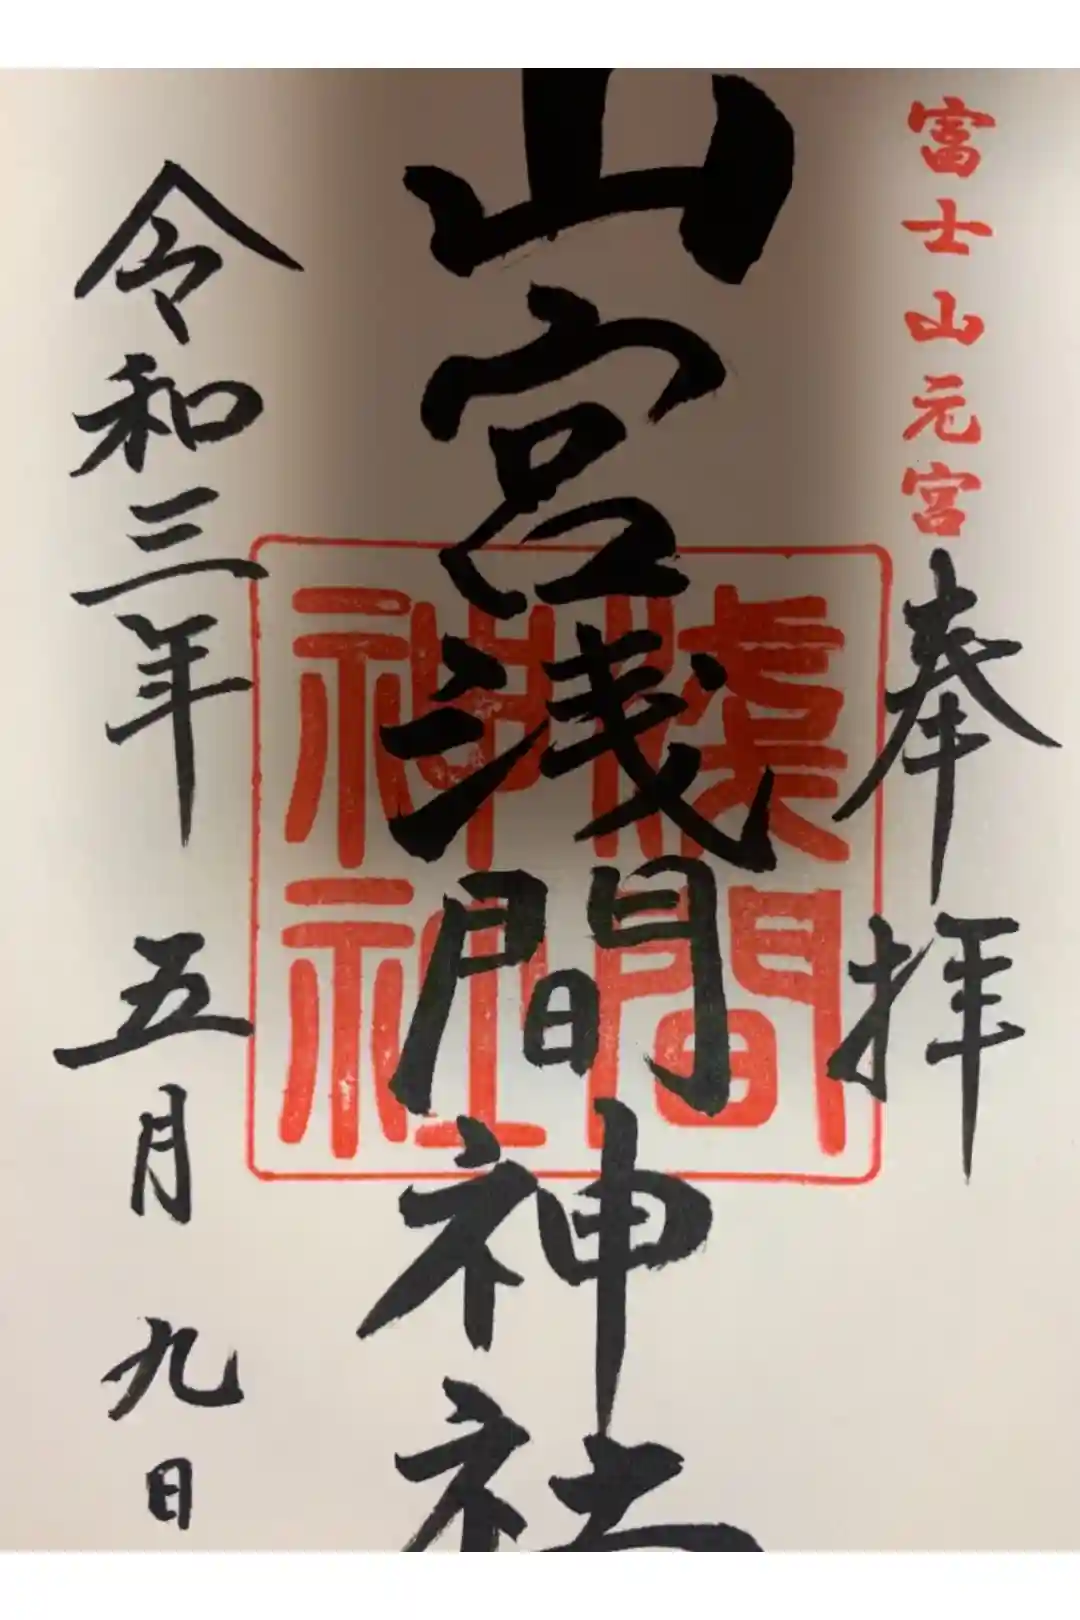 富士山元宮
奉拝
山宮浅間神社
浅間神社
令和三年 五月 九日